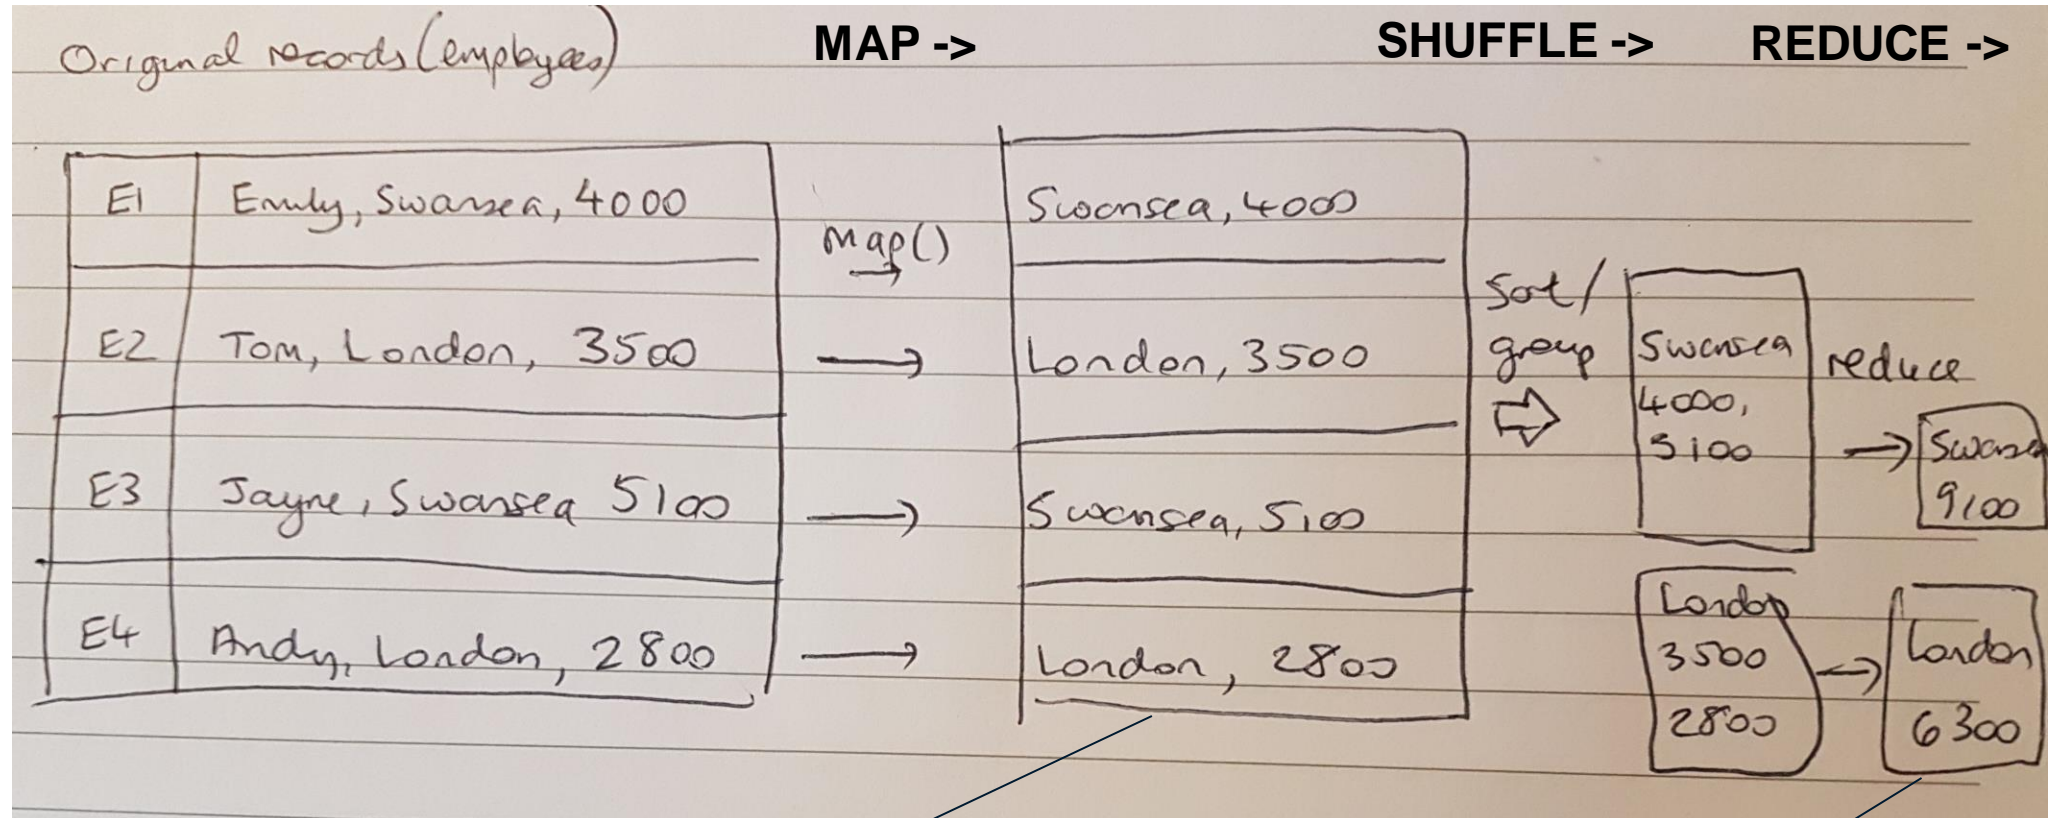 Original records (employees)
MAP ->
SHUFFLE ->
REDUCE ->
E1 Emily, Swansea, 4000
E2 Tom, London, 3500
E3 Jayne, Swansea 5100
E4 Andy, London, 2800
map()
Swansea, 4000
London, 3500
Swansea, 5100
London, 2800
Sort/
group
Swansea
4000,
5100
London
3500
2800
reduce
Swansea
9100
London
6300